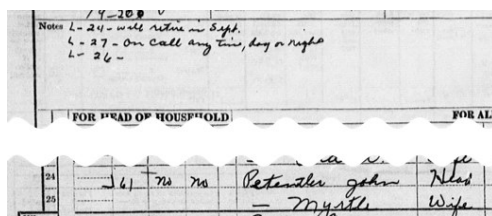 14-200
Notes L-24-will retire in Sept.
L-27-On Call any time, day or night
L-26-
FOR HEAD OF HOUSEHOLD FOR AL
24 61 no no John Head
25 — Myrtle Wife